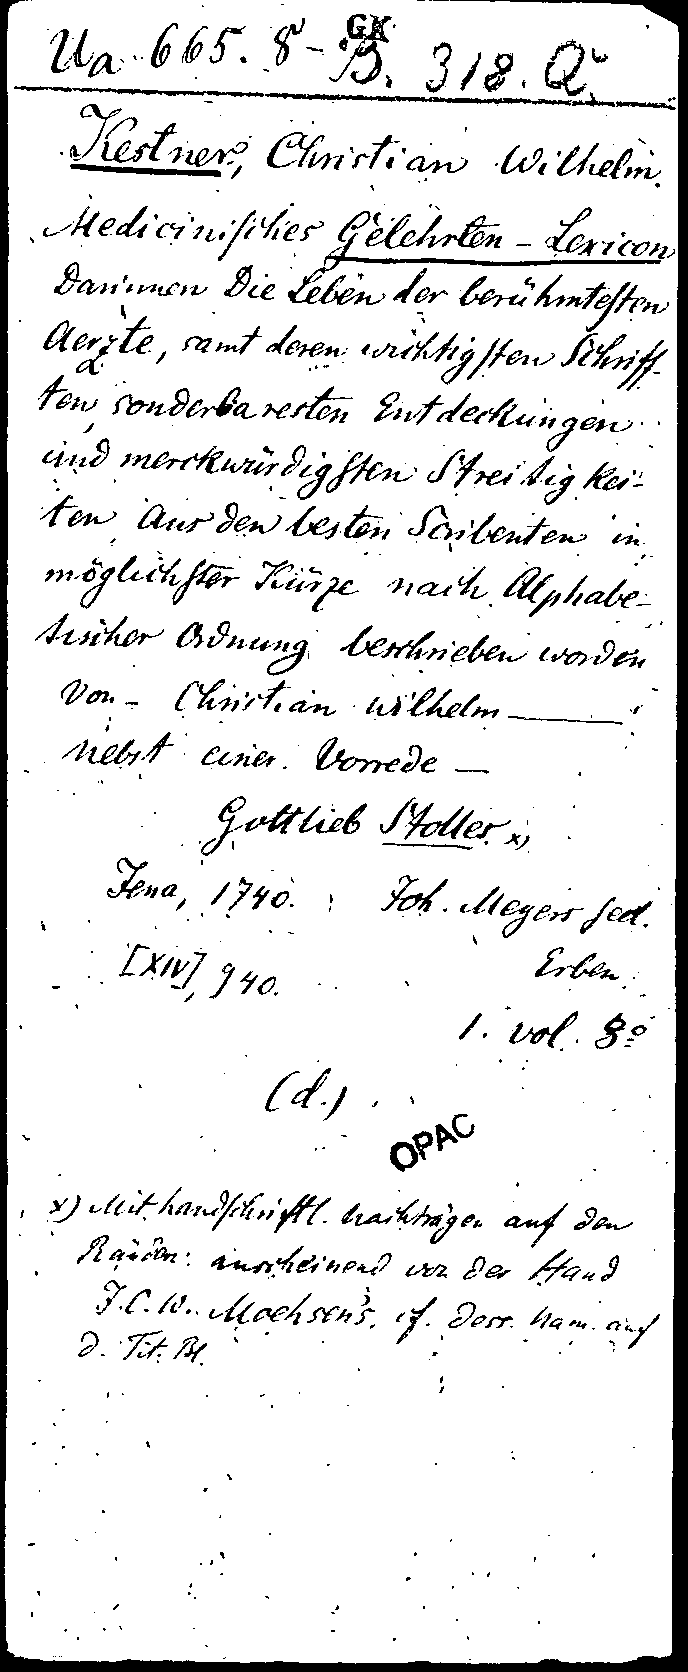 GK
Ua 665. 8 - B. 318. Q.
Kestner, Christian Wilhelm.
Medicinisches Gelehrten - Lexicon
Darinnen Die Leben der berühmtesten
Aerzte, samt deren wichtigsten Schriff-
ten, sonderbaresten Entdeckungen
und merckwürdigsten Streitigkei-
ten Aus den besten Scribenten in
möglichster Kürze nach Alphabe-
tischer Ordnung beschrieben worden
von - Christian Wilhelm ———
nebst einer Vorrede —
Gottlieb Stolles. x)
Jena, 1740. Joh. Meyers sel.
Erben.
[XIV], 940.
1. vol. 8º
(d.)
OPAC
x) Mit handschriftl. Nachträgen auf den
Rändern: anscheinend von der Hand
J. C. W. Moehsen's. cf. dess. Nam. auf
d. Tit. Bl.